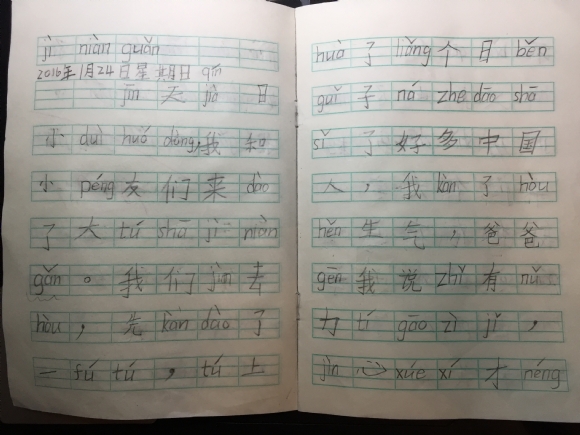 jì niàn guǎn
2016年1月24日星期日 qín
jīn 天 jiǎ 日
小 duì huó dòng,我 和
小 péng 友 们 来 dào
了 大 tú shā jì niàn
gǎn 。 我 们 jìn 去
hòu , 先 kàn dào 了
一 fú tú , tú 上
huà 了 liǎng 个 日 běn
guǐ 子 ná zhe dāo shā
sǐ 了 好 多 中 国
人 , 我 kàn 了 hòu
hěn 生 气 , 爸 爸
gēn 我 说 zhǐ 有 nǔ
力 tí gāo zì jǐ ,
jìn 心 xué xí 才 néng